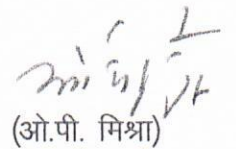 (ओ.पी. मिश्रा)